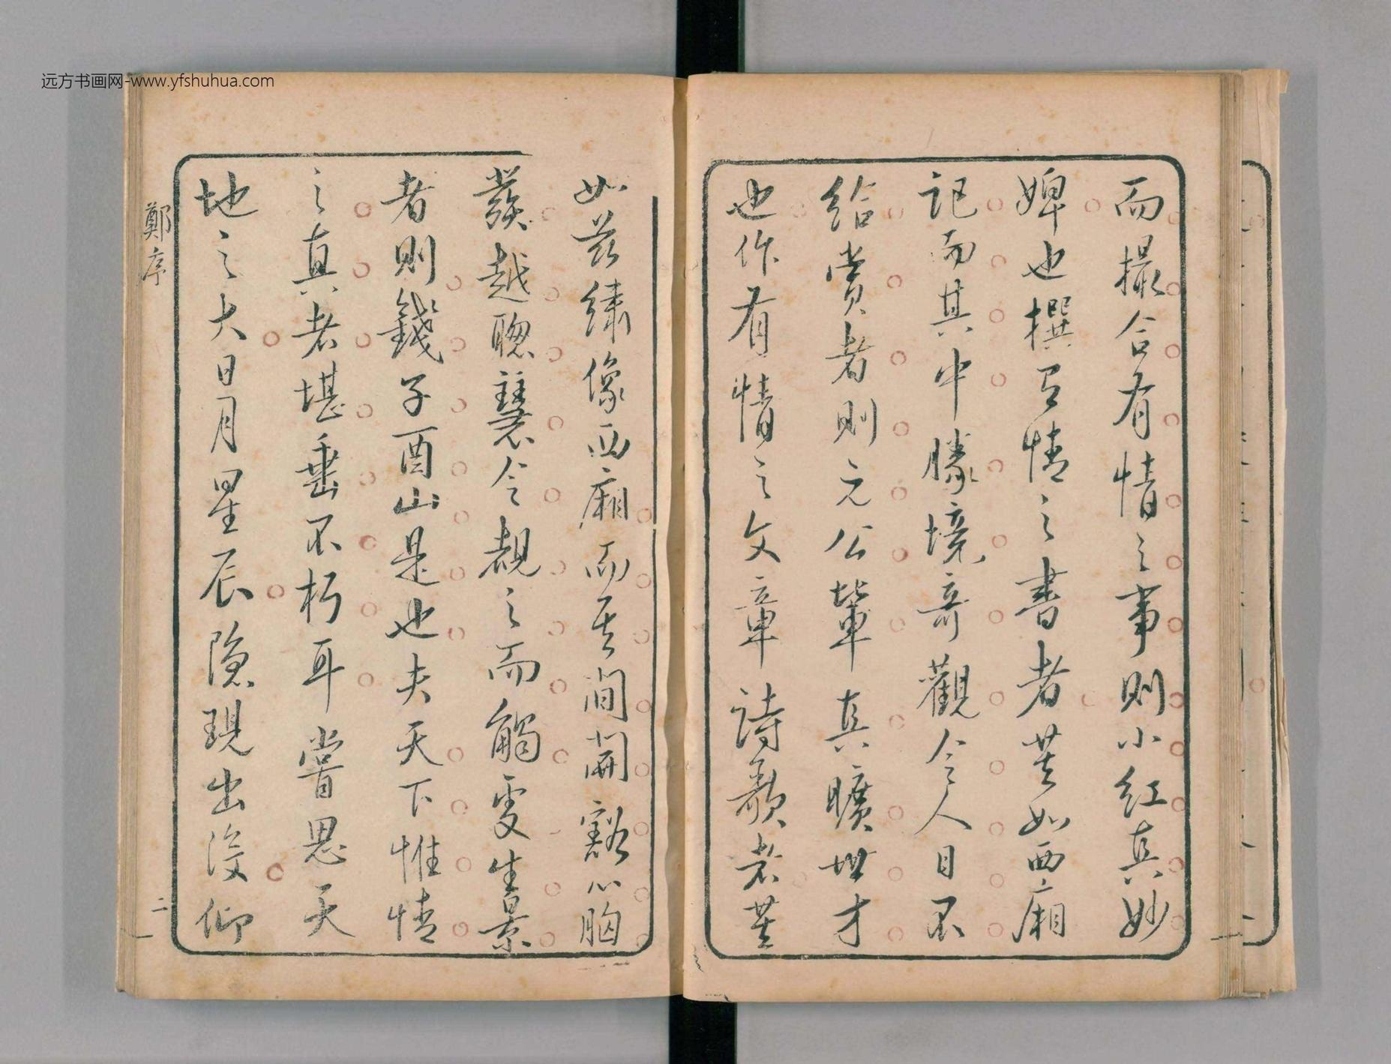 远方书画网-www.yfshuhua.com
而撮合有情之事則小紅真妙
婢也撰有情之書者莫如西廂
記而其中勝境奇觀令人目不
給賞者則元公輩真曠世才
也作有情之文章詩歌者莫
如茲繡像西廂而其間開豁心胸
發越聰慧令覩之而觸處生景
者則錢子酉山是也夫天下惟情
之真者堪垂不朽耳嘗思天
地之大日月星辰隱現出沒仰
鄭序
二